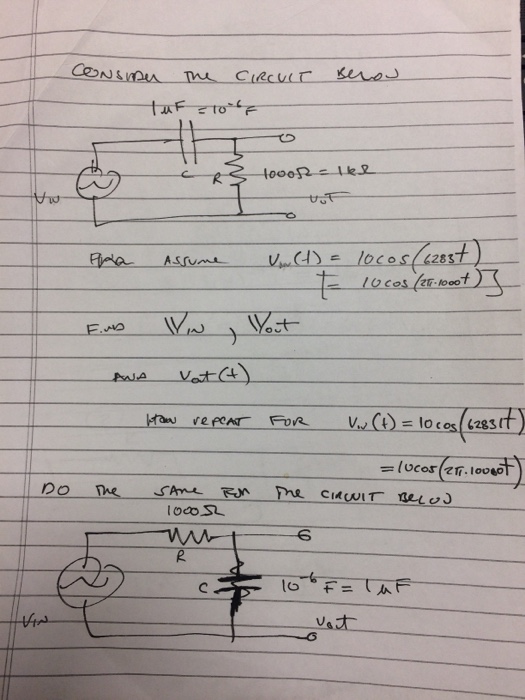 CONSIDER THE CIRCUIT BELOW
1uF = 10^-6 F
C R 1000Ω = 1kΩ
VIN VOUT
ASSUME Vin(t) = 10cos(6283t)
[= 10cos(2π·1000t)]
FIND VIN, Vout
AND Vout(t)
NOW REPEAT FOR Vin(t) = 10cos(62831t)
= 10cos(2π·10000t)
DO THE SAME FOR THE CIRCUIT BELOW
1000Ω
R
C 10^-6 F = 1uF
VIN Vout